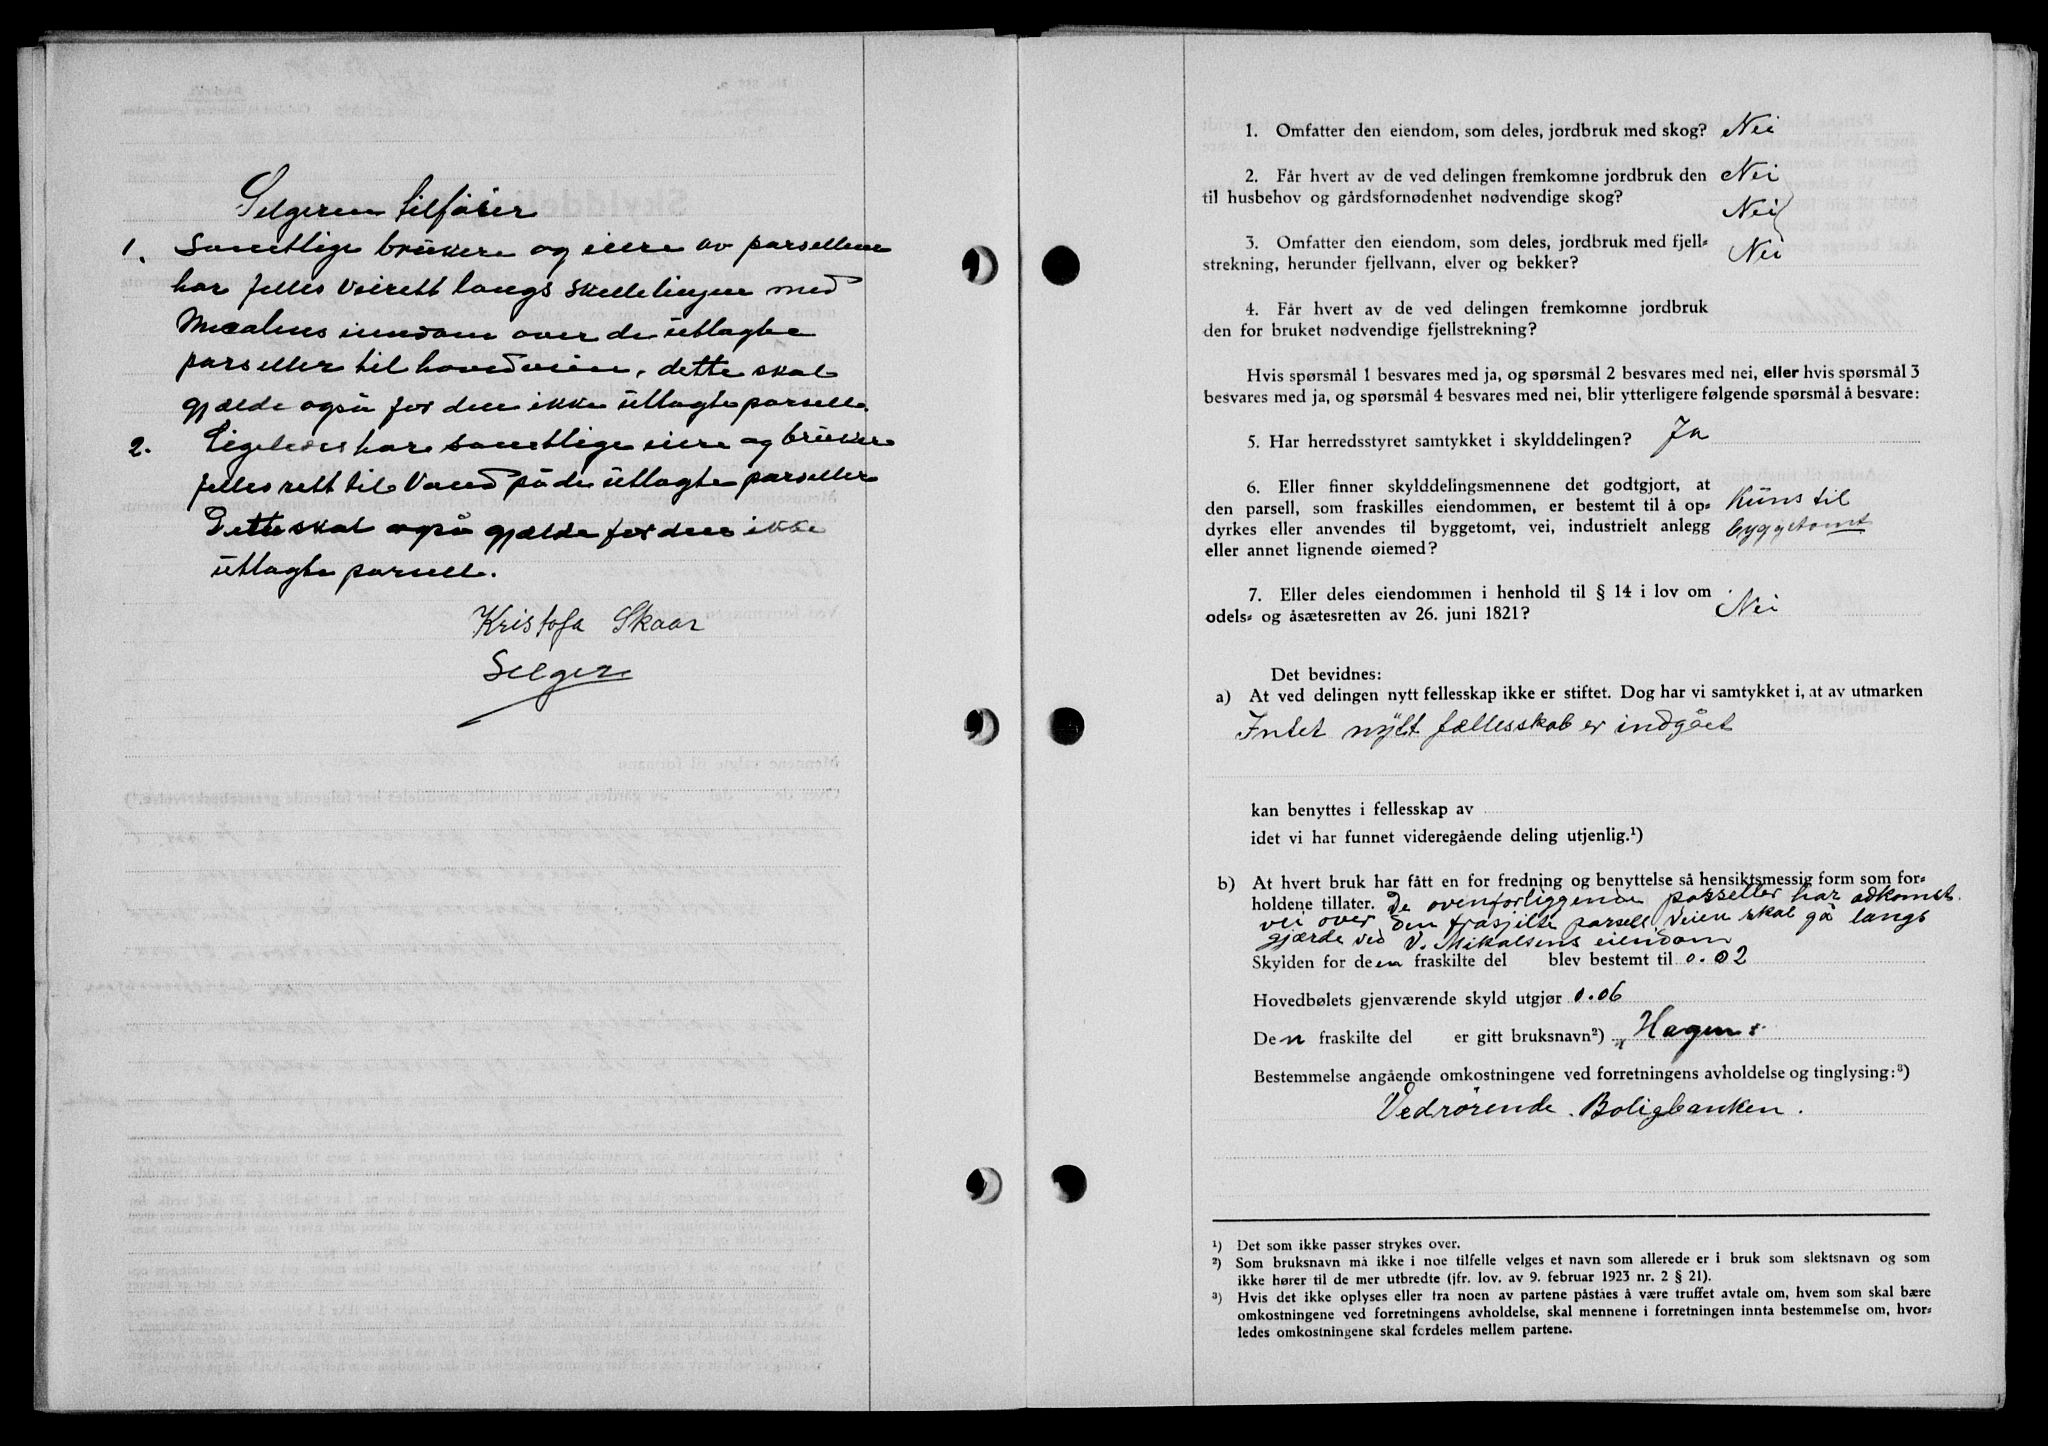 Selgeren tilføier
1. Samtlige brukere og eiere av parsellene
har felles Veirett langs skellelinjen med
eiendom over de utlagte
parseller til hovedveien, dette skal
gjælde også for den ikke utlagte parsell.
2. Ligeledes har samtlige eiere og brukere
felles rett til Vand på de utlagte parseller
Dette skal også gjælde for den ikke
utlagte parsell.
Kristofa Skaar
Selger
1. Omfatter den eiendom, som deles, jordbruk med skog? Nei
2. Får hvert av de ved delingen fremkomne jordbruk den Nei
til husbehov og gårdsfornødenhet nødvendige skog? Nei
3. Omfatter den eiendom, som deles, jordbruk med fjell-
strekning, herunder fjellvann, elver og bekker? Nei
4. Får hvert av de ved delingen fremkomne jordbruk
den for bruket nødvendige fjellstrekning?
Hvis spørsmål 1 besvares med ja, og spørsmål 2 besvares med nei, eller hvis spørsmål 3
besvares med ja, og spørsmål 4 besvares med nei, blir ytterligere følgende spørsmål å besvare:
5. Har herredsstyret samtykket i skylddelingen? Ja
6. Eller finner skylddelingsmennene det godtgjort, at
den parsell, som fraskilles eiendommen, er bestemt til å op- Kuns til
dyrkes eller anvendes til byggetomt, vei, industrielt anlegg byggetomt
eller annet lignende øiemed?
7. Eller deles eiendommen i henhold til § 14 i lov om
odels- og åsætesretten av 26. juni 1821? Nei
Det bevidnes:
a) At ved delingen nytt fellesskap ikke er stiftet. Dog har vi samtykket i, at av utmarken
Intet nytt fællesskab er indgået
kan benyttes i fellesskap av
idet vi har funnet videregående deling utjenlig.¹)
b) At hvert bruk har fått en for fredning og benyttelse så hensiktsmessig form som for-
holdene tillater. De ovenforliggende parseller har adkomst
vei over den frasjilte parsell. Veien skal gå langs
gjærde ved V. Mikalsens eiendom
Skylden for den fraskilte del blev bestemt til 0.02
Hovedbølets gjenværende skyld utgjør 0.06
Den fraskilte del er gitt bruksnavn²) „Hagen"
Bestemmelse angående omkostningene ved forretningens avholdelse og tinglysing:³)
Vedrørende. Boligbanken.
¹) Det som ikke passer strykes over.
²) Som bruksnavn må ikke i noe tilfelle velges et navn som allerede er i bruk som slektsnavn og som
ikke hører til de mer utbredte (jfr. lov. av 9. februar 1923 nr. 2 § 21).
³) Hvis det ikke oplyses eller fra noen av partene påståes å være truffet avtale om, hvem som skal bære
omkostningene ved forretningens avholdelse, skal mennene i forretningen innta bestemmelse om, hvor-
ledes omkostningene skal fordeles mellem partene.